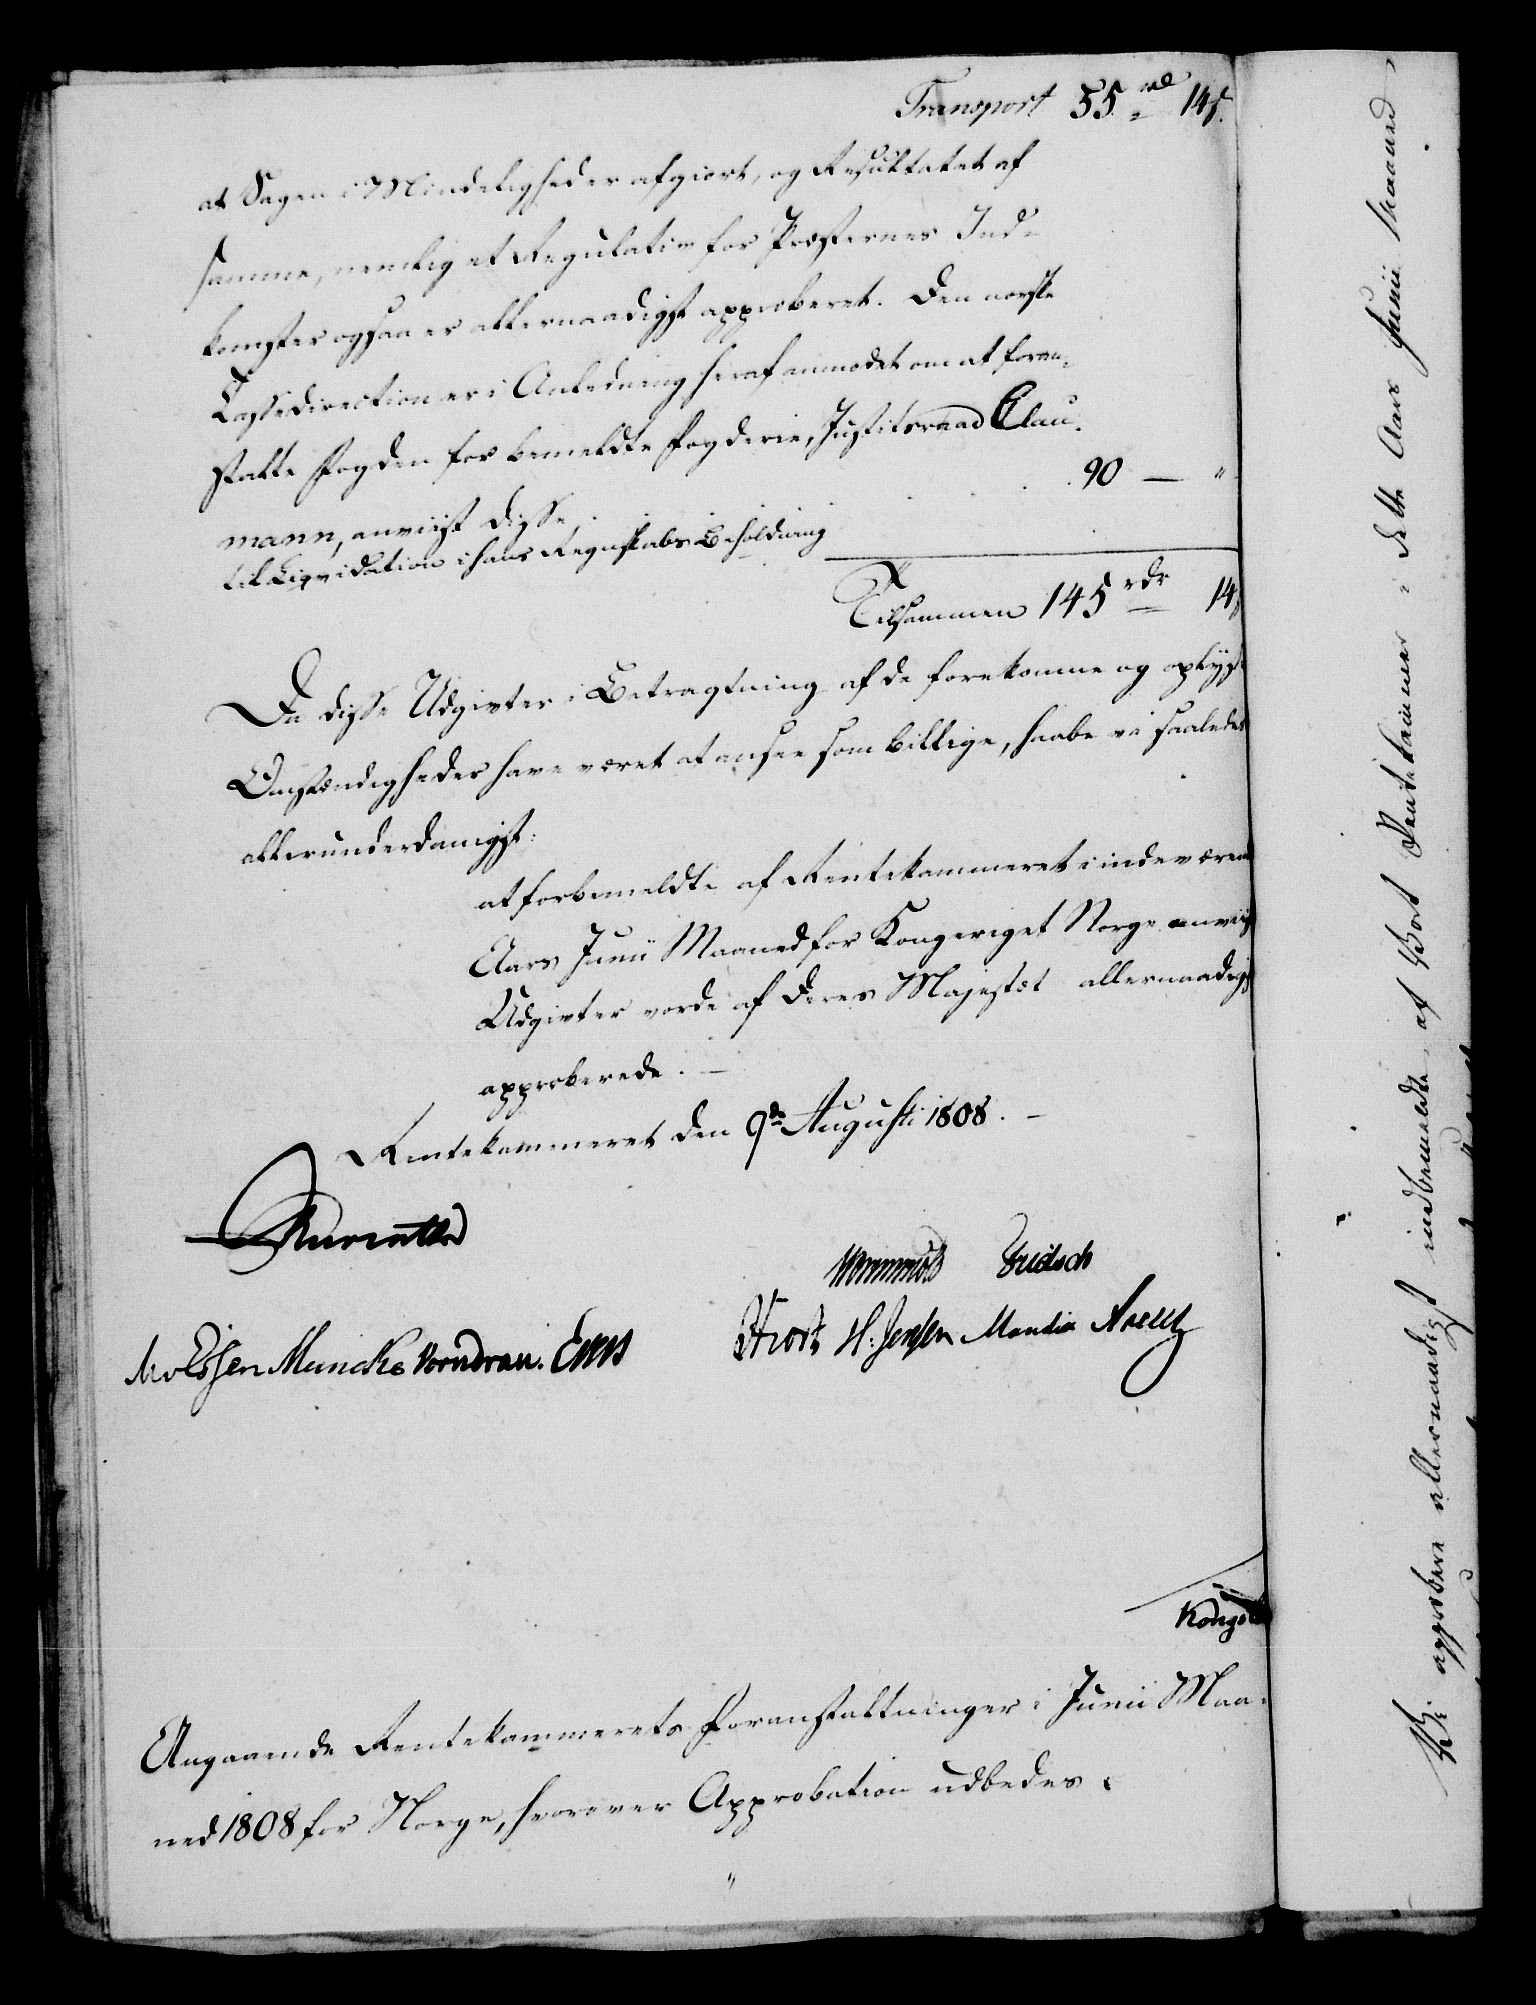 Transport 55 rd 14 s.
at Sagen i Mindelighed er afgiort, og Resultatet af
samme, nemlig et Regulativ for Præsternes Ind-
komster ogsaa er allernaadigst approberet. Den norske
Cassedirection er i Anledning heraf anmodet om at foran-
stalte Fogden for bemeldte Fogderie, Justitsraad Clau-
mann, anviist disse,
90 — "
til Liqvidation i hans Regnskabs Beholdning
Tilsammen 145 rdr 14 s
Da disse Udgivter i Betragtning af de forekomne og oplyste
Omstændigheder have været at ansee som billige, haabe vi saaledes
allerunderdanigst:
at forbemeldte af Rentekammeret i indeværende
Aars Junii Maaned for Kongeriget Norge anviiste
Udgivter vorde af Deres Majestæt allernaadigst
approberede. —
Rentekammeret den 9de Augusti 1808. —
Wormskiold
Hiort H: Jensen
M v Essen Muncke Vorndran.
Kongel
Angaaende Rentekammerets Foranstaltninger i Junii Maa-
ned 1808 for Norge, hvorover Approbation udbedes.
Vi approbere allernaadigst indbemeldte af Vort Rentekammer i dette Aars Junii Maaned